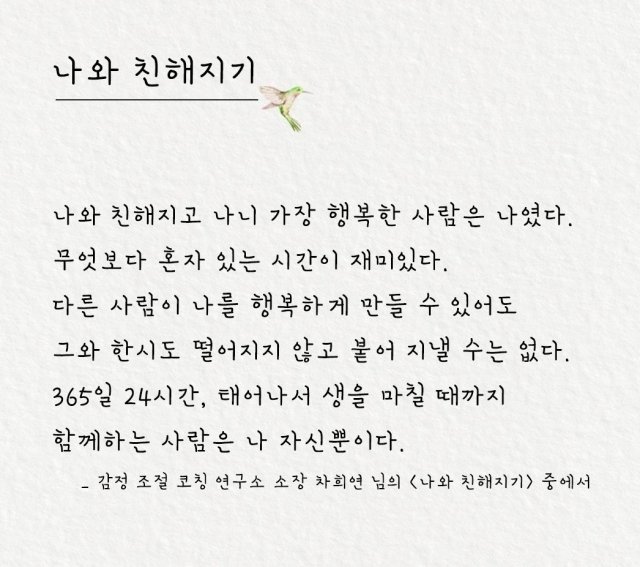 나와 친해지기
나와 친해지고 나니 가장 행복한 사람은 나였다.
무엇보다 혼자 있는 시간이 재미있다.
다른 사람이 나를 행복하게 만들 수 있어도
그와 한시도 떨어지지 않고 붙어 지낼 수는 없다.
365일 24시간, 태어나서 생을 마칠 때까지
함께하는 사람은 나 자신뿐이다.
- 감정 조절 코칭 연구소 소장 차희연 님의 <나와 친해지기> 중에서